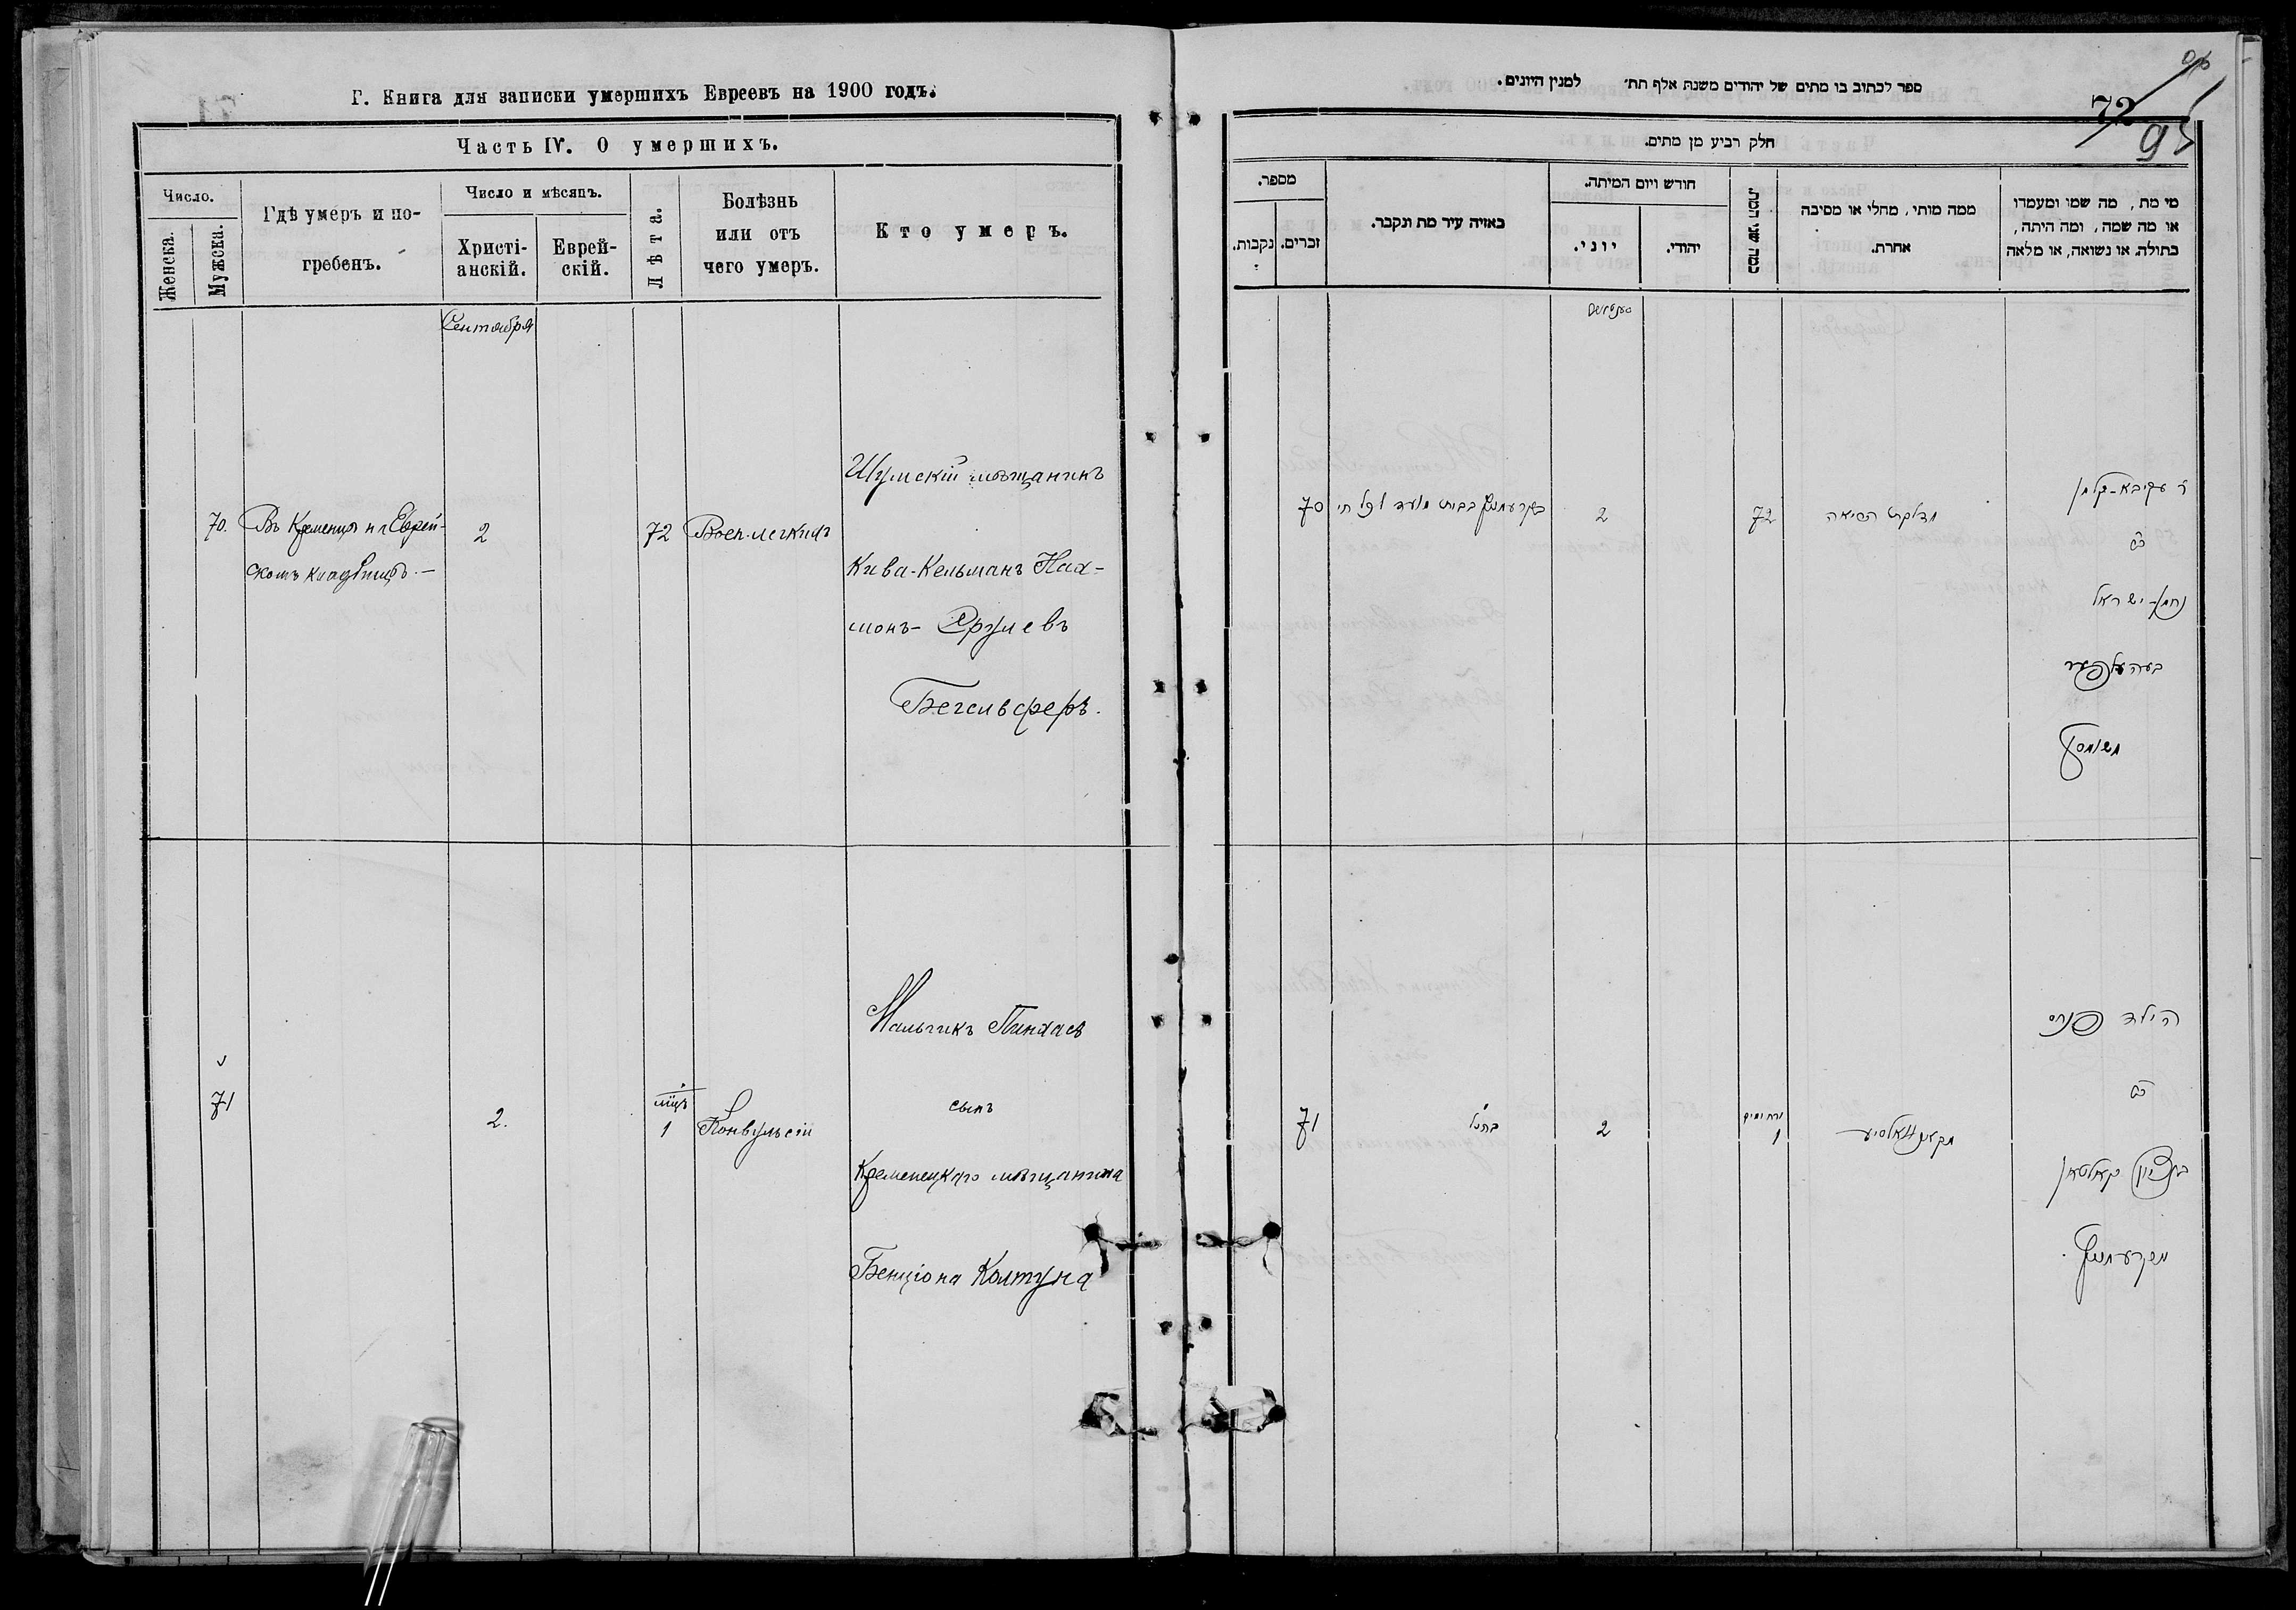 Г. Книга для записки умершихъ Евреевъ на 1900 годъ.
Часть IV. О умершихъ.
Число.
Женска.
Мужска.
Гдѣ умеръ и по-
гребенъ.
Число и мѣсяцъ.
Христі-
анскій.
Еврей-
скій.
Лѣта.
Болѣзнь
или отъ
чего умеръ.
Кто умеръ.
Сентября
70.
Въ Кременцѣ на Еврей-
скомъ кладбищѣ.-
2
72
Восп. легкихъ
Шумскій мѣщанинъ
Кива-Кельманъ Нах-
монъ- Срулевъ
Бегельферъ.
71
2.
мѣц.
1
Конвульсіи
Мальчикъ Пинхасъ
сынъ
Кременецкаго мѣщанина
Бенціона Колтуна
ספר לכתוב בו מתים של יהודים משנת אלף תת׳ למנין היונים.
72
95
חלק רביע מן מתים.
מספר.
נקבות.
זכרים.
באיזה עיר מת ונקבר.
חודש ויום המיתה.
יוני.
יהודי.
כמה שני המת.
ממה מותו, מחלי או מסיבה
אחרת.
מי מת, מה שמו ומעמדו
או מה שמה, ומה היתה,
בתולה או נשואה, או מלאה
סעפטיאב
70
בקרעמניץ בבית מועד לכל חי
2
72
מדלקת הריאה
ר עקיבא-קלמן
ב״ר
נחמן-ישראל
בעהעלפער
משומסק
71
כהנ״ל
2
ירח ימים
1
הילד פנחס
ב״ר
בן ציון קאלטאן
מקרעמניץ.